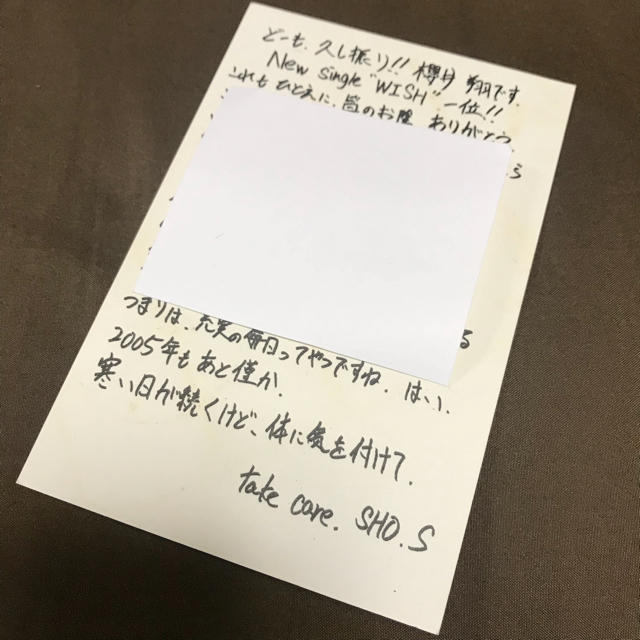 どーも、久し振り!! 櫻井 翔です。
New single "WISH" 一位!!
これも ひとえに、皆のお陰 ありがとう
ら
る
つまりは、充実の毎日ってやつですね. はい.
2005年もあと僅か.
寒い日が続くけど、体に気を付けて.
take care. SHO.S